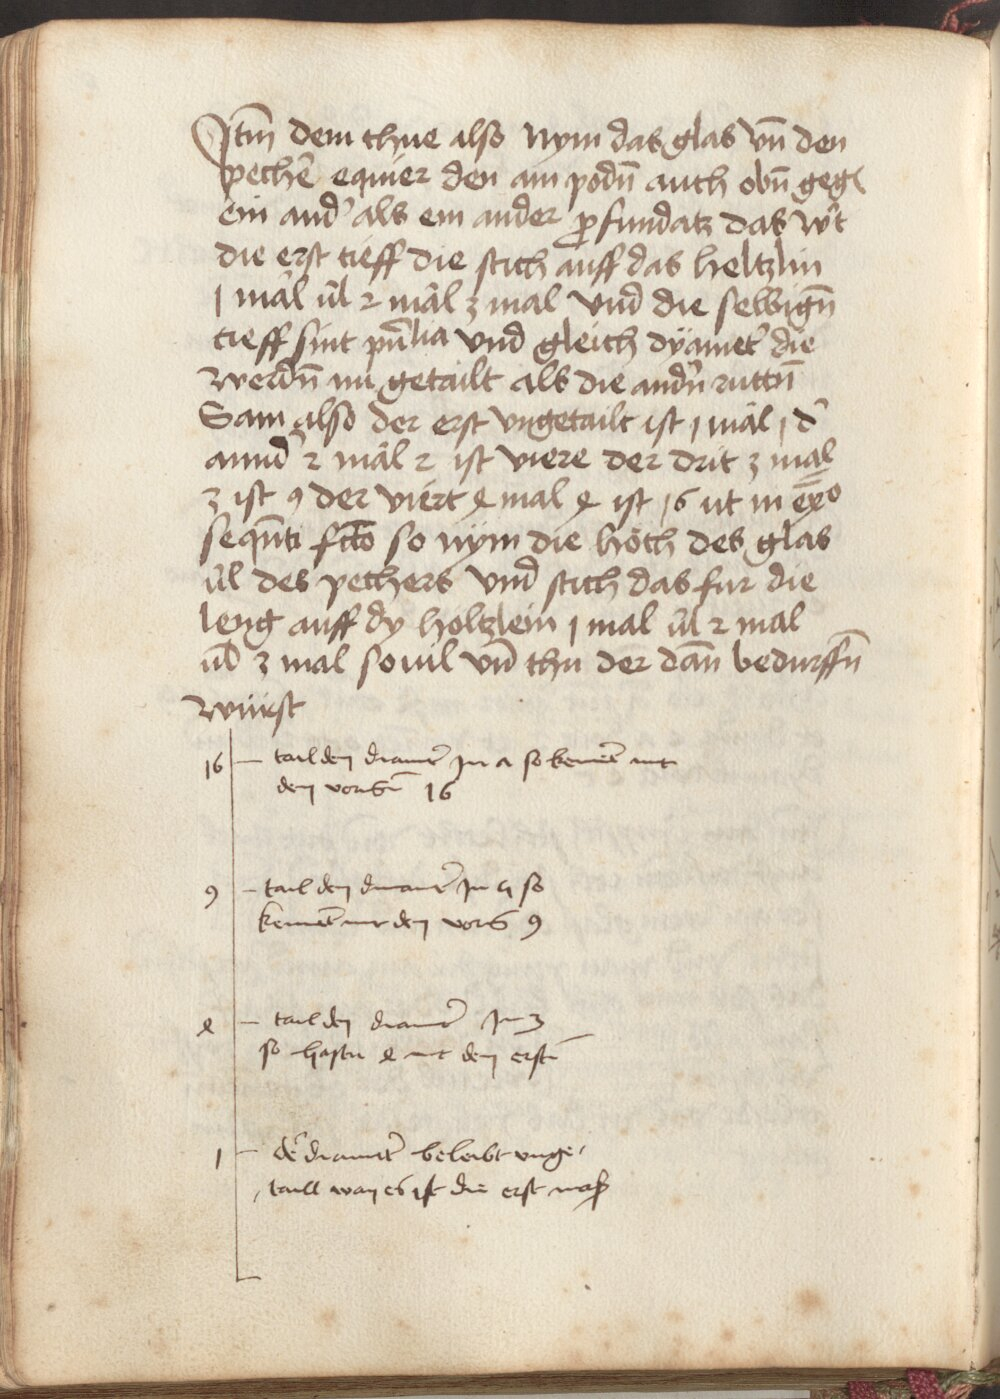 Itm̄ dem thue also Nym das glas vn̄ den
pecher̄ equier den am podn̄ auch obn̄ geg
ein and' als ein ander ꝓfundatz das wt̄
die erst tieff die stich auff das heltzlin
1 mal ūl 2 mal 3 mal vnd die selbign̄
tieff sint pūlia vnd gleich dÿamet' die
werdn̄ nu getailt als die andn̄ ruttn̄
Sam also der erst vngetailt ist 1 mal 1 d'
annd' 2 mal 2 ist viere der drit 3 mal
3 ist 9 der viert 4 mal 4 ist 16 ut in ex̄o
seqūti fcō so nym die höch des glas
ūl des pechers vnd stich das fur die
leng auff dy höltzlein 1 mal ūl 2 mal
ūl 3 mal souil vn̄ thu der dan̄ bedurffn̄
würst
16 – tail den diamet' In 4 so kement mit
den vorign̄ 16
9 – tail den diamet' In 4 so
kement mit den vorig 9
4 – tail den diamet' In 3
so hastu 4 mit dem erstn̄
1 – de' diamet' beleibt unge
taill wan es ist die erst mas